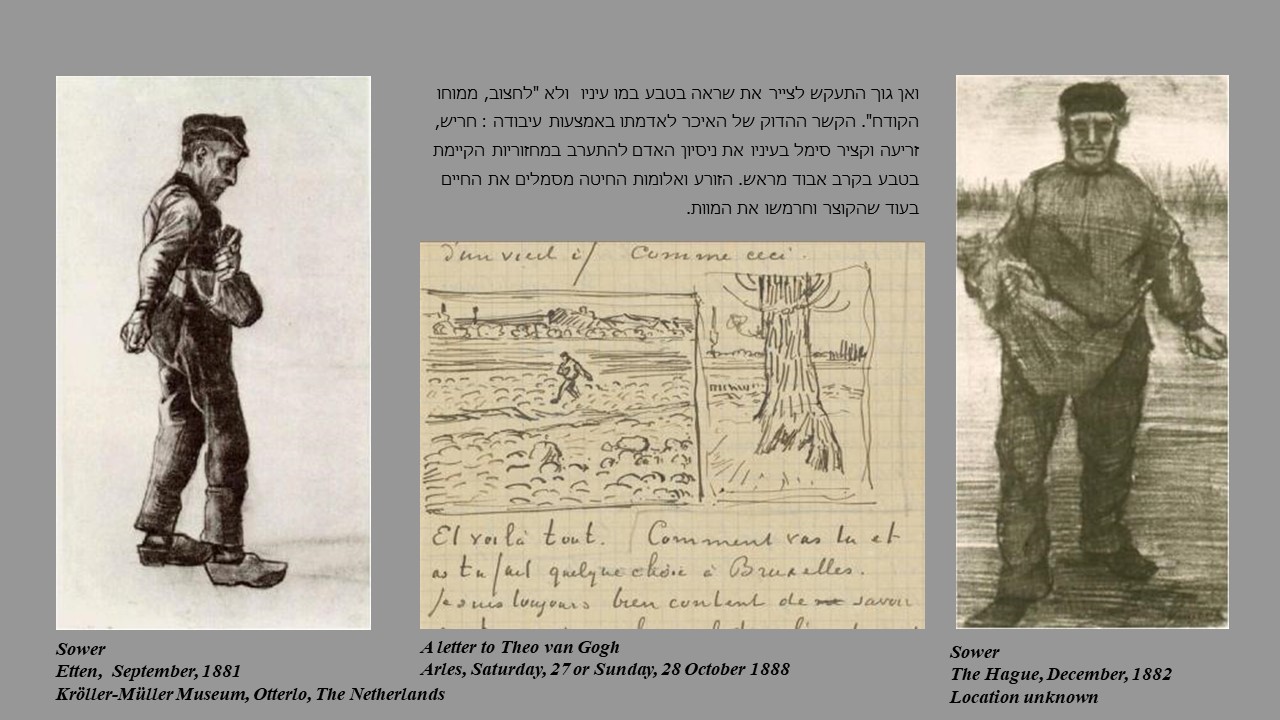 ואן גוך התעקש לצייר את שראה בטבע במו עיניו ולא "לחצוב, ממוחו
הקודח". הקשר ההדוק של האיכר לאדמתו באמצעות עיבודה : חריש,
זריעה וקציר סימל בעיניו את ניסיון האדם להתערב במחזוריות הקיימת
בטבע בקרב אבוד מראש. הזורע ואלומות החיטה מסמלים את החיים
בעוד שהקוצר וחרמשו את המוות.
d'un vieil if Comme ceci.
Et voilà tout. Comment vas tu et
as tu fait quelque chose à Bruxelles.
Je suis toujours bien content de savoir
Sower
Etten, September, 1881
Kröller-Müller Museum, Otterlo, The Netherlands
A letter to Theo van Gogh
Arles, Saturday, 27 or Sunday, 28 October 1888
Sower
The Hague, December, 1882
Location unknown